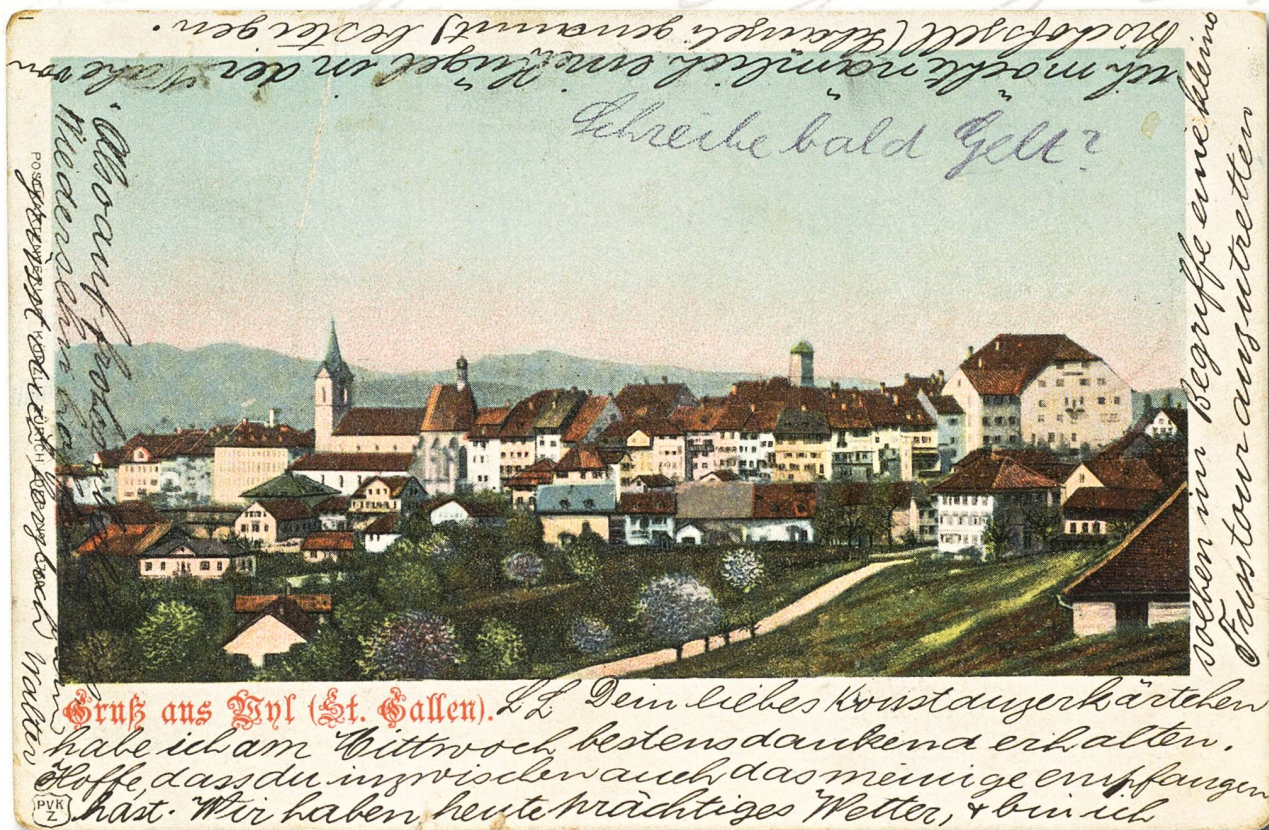 Gruß aus Wyl (St. Gallen).
LL Dein liebes Konstanzerkärtchen
habe ich am Mittwoch bestens dankend erhalten.
Hoffe, dass du inzwischen auch das meinige empfangen
hast. Wir haben heute prächtiges Wetter, & bin ich
soeben im Begriffe eine kleine
Fusstour anzutretten
ich möchte nämlich einen Hügel in der Nähe von
Bischofszell ( genannt) besteigen.
Also auf frohes
Wiedersehn
grüsst dich herz Walter
Schreibe bald Gelt?
PVK
Z